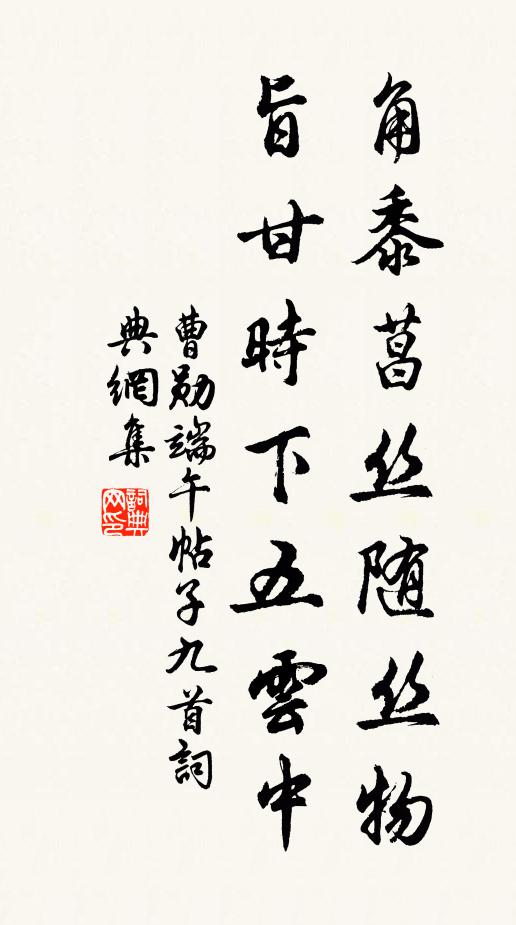 角黍菖丝随丝物
旨甘時下五雲中
曹勛端午帖子九首詞
典網集
詞典网印